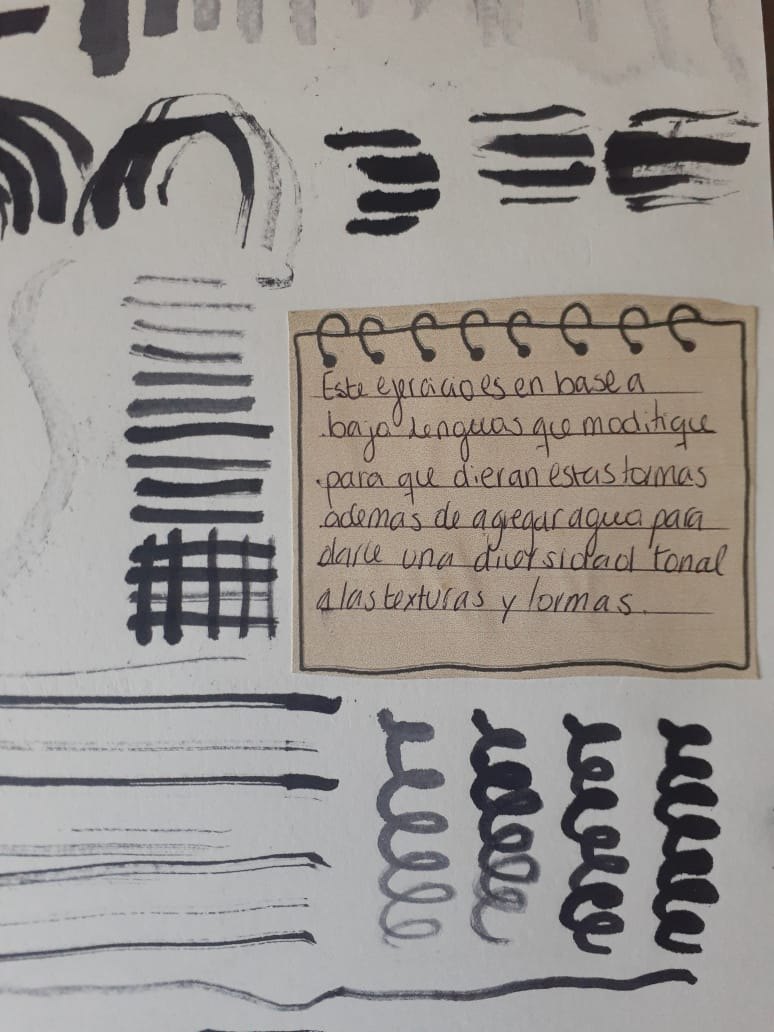 Este ejercicio es en base a
baja lenguas que modifique
para que dieran estas formas
ademas de agregar agua para
darle una diversidad tonal
a las texturas y formas.